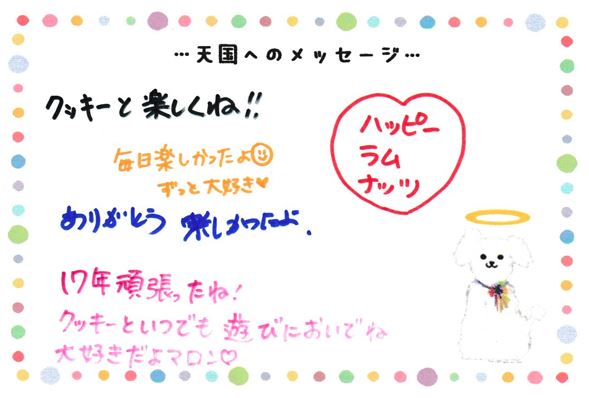 …天国へのメッセージ…
クッキーと楽しくね!!
ハッピー
ラム
ナッツ
毎日楽しかったよ☺
ずっと大好き♥
ありがとう 楽しかったよ.
17年頑張ったね!
クッキーといつでも遊びにおいでね
大好きだよマロン♡